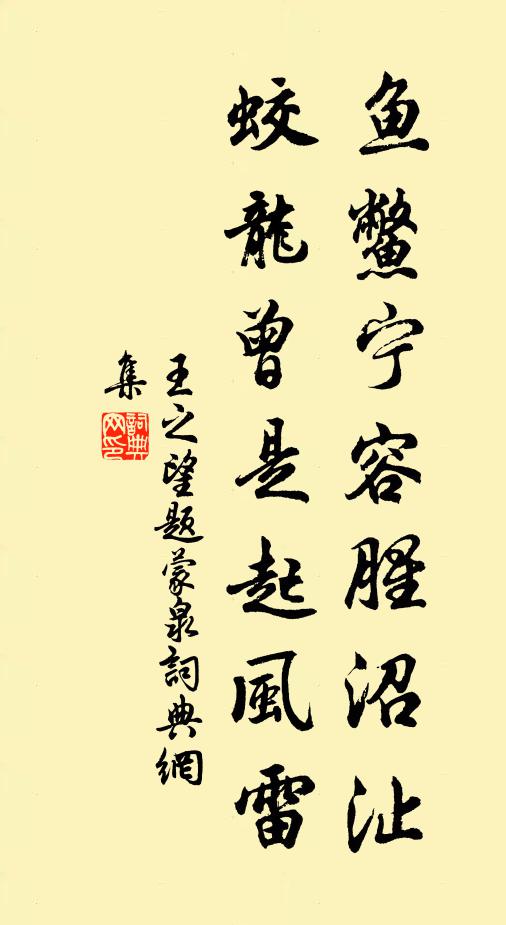 鱼鳖宁容腥沼沚
蛟龍曾是起風雷
王之望题蒙泉詞典網
集
詞典网印